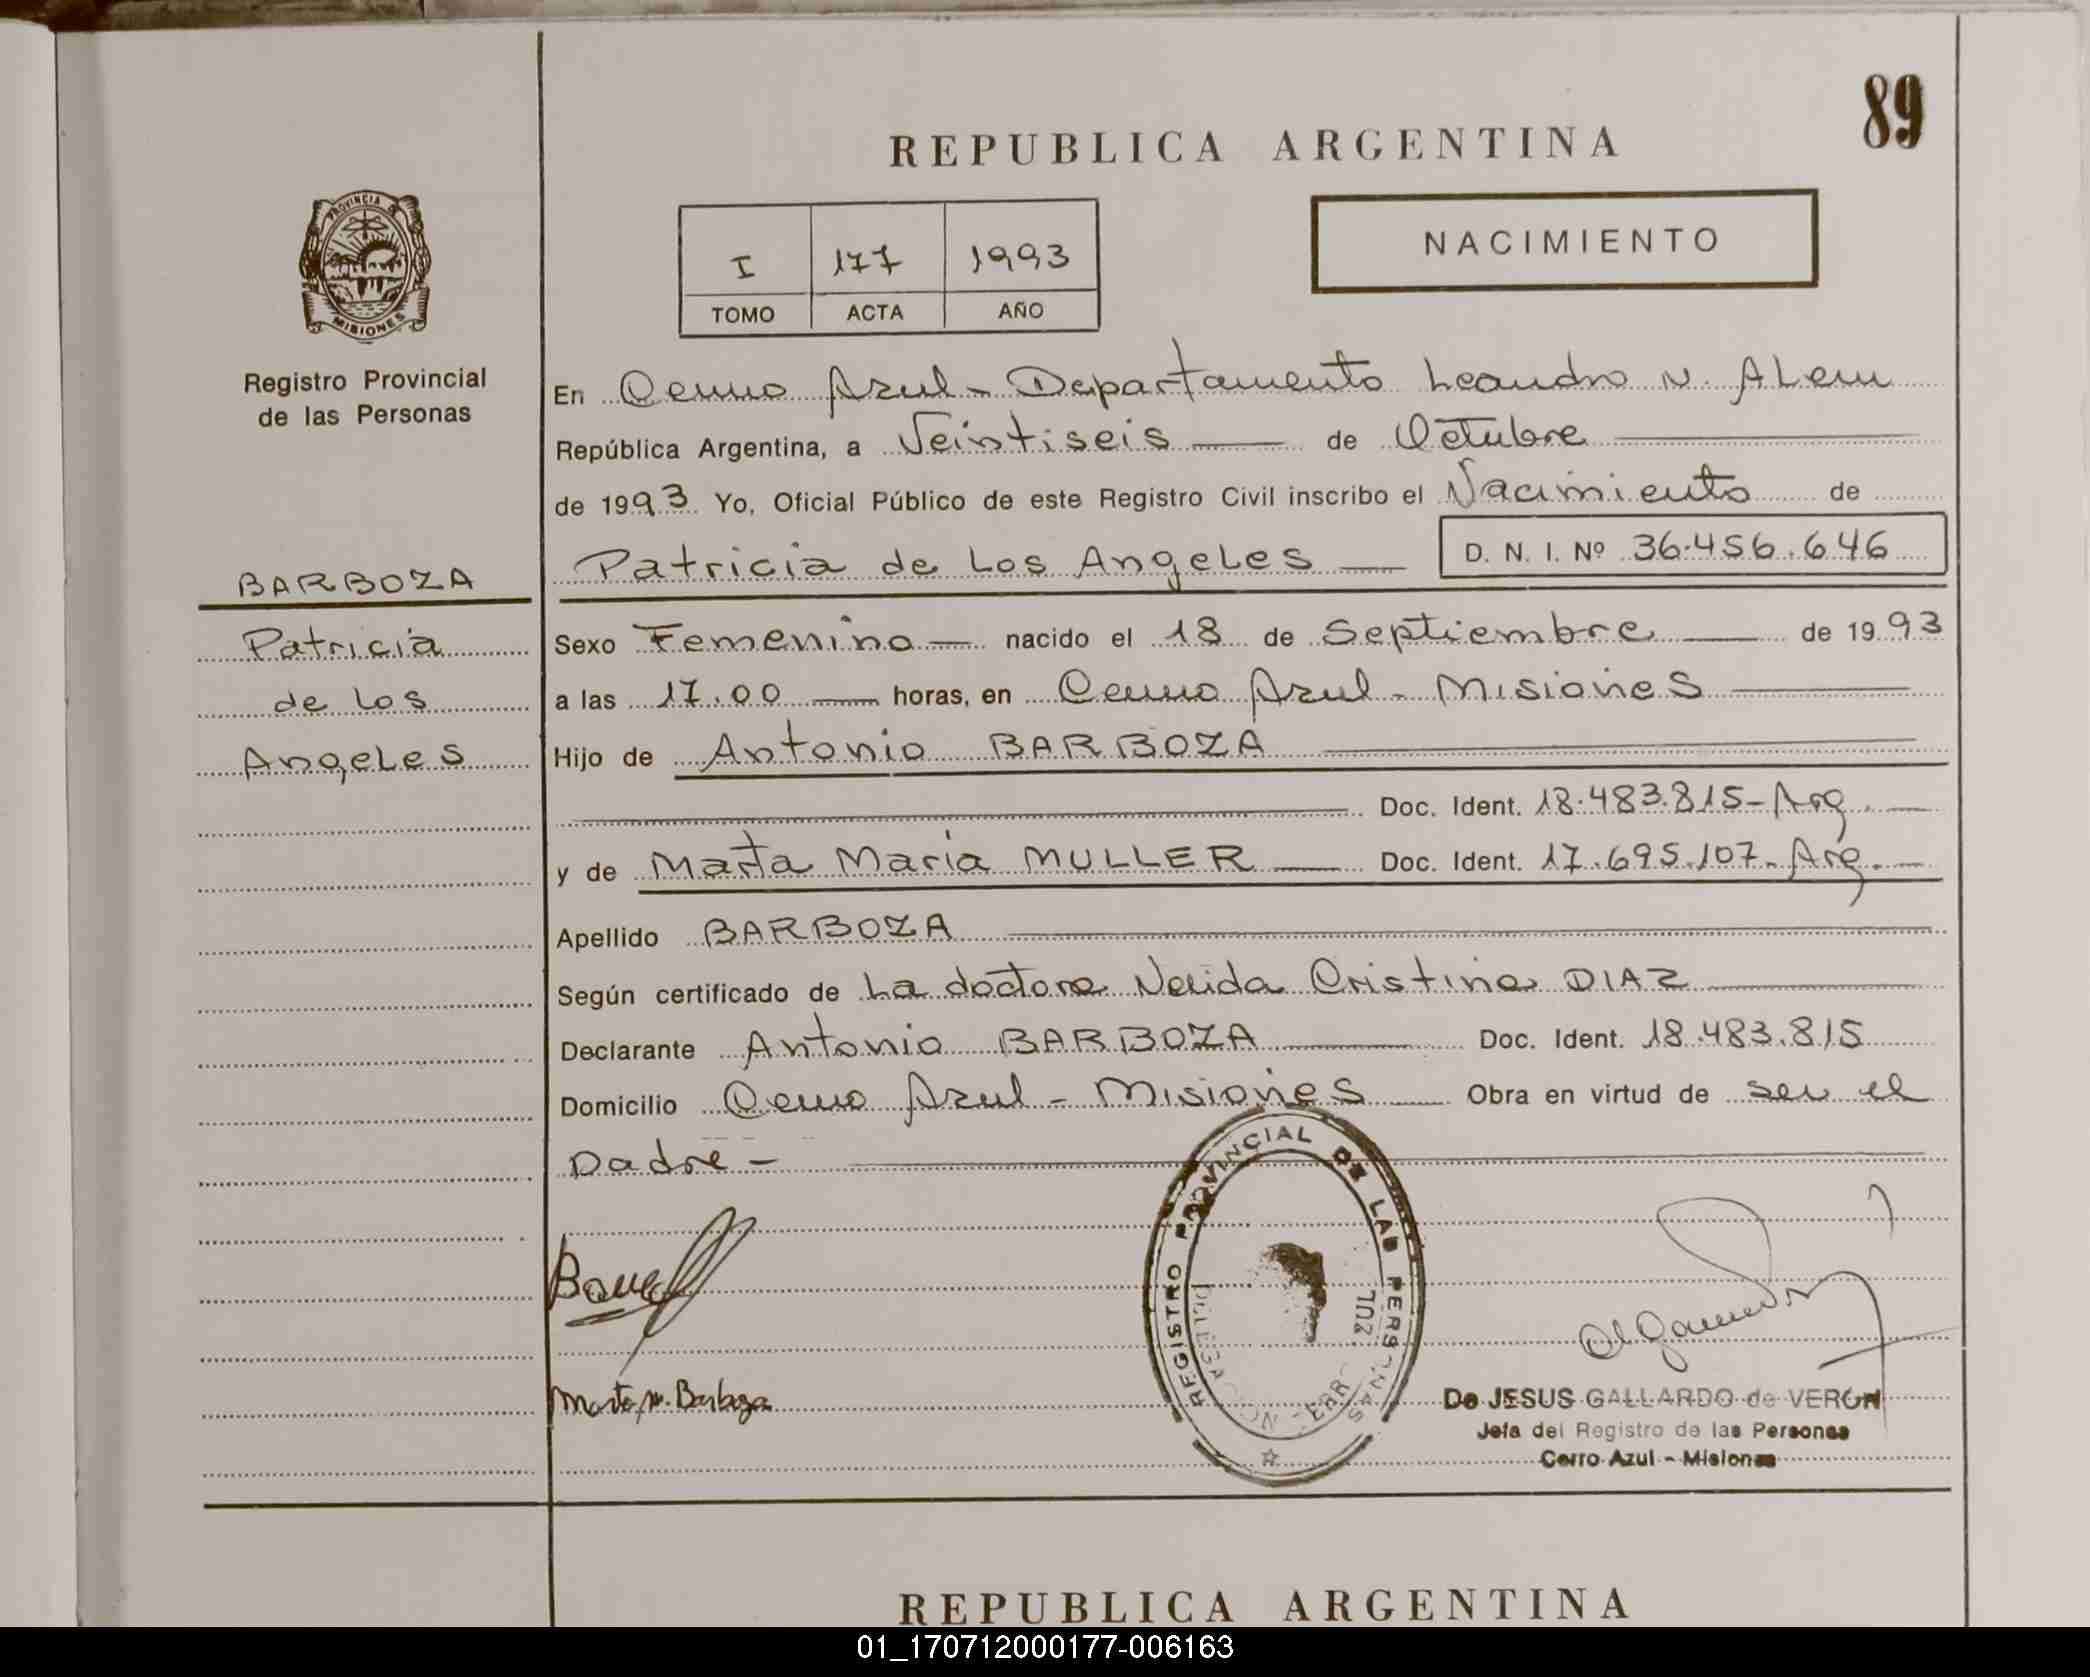 89
REPUBLICA ARGENTINA
PROVINCIA DE
MISIONES
I 177 1993
TOMO ACTA AÑO
NACIMIENTO
Registro Provincial
de las Personas
En Cerro Azul - Departamento Leandro N. ALem
República Argentina, a Veintiseis de Octubre
de 1993 Yo, Oficial Público de este Registro Civil inscribo el Nacimiento de
Patricia de Los Angeles D. N. I. Nº 36.456.646
BARBOZA
Patricia
de Los
AngeLes
Sexo Femenino nacido el 18 de Septiembre de 1993
a las 17.00 horas, en Cerro Azul - Misiones
Hijo de Antonio BARBOZA
Doc. Ident. 18.483.815 - Arg.
y de Marta Maria MULLER Doc. Ident. 17.695.107 - Arg.
Apellido BARBOZA
Según certificado de La doctora Nelida Cristina DIAZ
Declarante Antonio BARBOZA Doc. Ident. 18.483.815
Domicilio Cerro Azul - Misiones Obra en virtud de ser el
Padre -
REGISTRO PROVINCIAL DE LAS PERSONAS
Marta M. Barboza
De JESUS GALLARDO de VERON
Jefa del Registro de las Personas
Cerro Azul - Misiones
REPUBLICA ARGENTINA
01_170712000177-006163